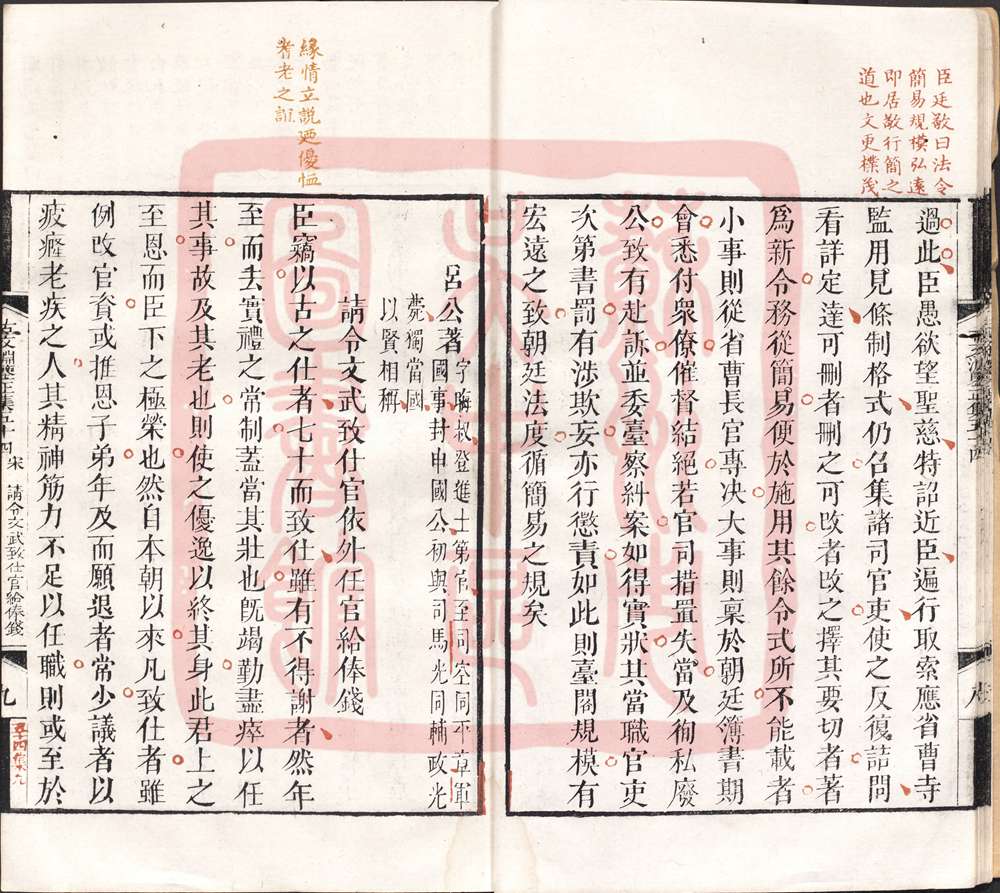 臣廷敬曰法令
簡易規模弘遠
即居敬行簡之
道也文更樸茂
過此臣愚欲望聖慈特詔近臣遍行取索應省曹寺
監用見條制格式仍召集諸司官吏使之反復詰問
看詳定達可刪者刪之可改者改之擇其要切者著
爲新令務從簡易便於施用其餘令式所不能載者
小事則從省曹長官專决大事則稟於朝廷簿書期
會悉付衆僚催督結絕若官司措置失當及徇私廢
公致有赴訴並委臺察糾案如得實狀其當職官吏
次第書罰有涉欺妄亦行懲責如此則臺閣規模有
宏遠之致朝廷法度循簡易之規矣
緣情立說廼優恤
耆老之訓
呂公著
字晦叔登進士第官至司空同平章軍
國事封申國公初與司馬光同輔政光
薨獨當國
以賢相稱
請令文武致仕官依外任官給俸錢
臣竊以古之仕者七十而致仕雖有不得謝者然年
至而去實禮之常制蓋當其壯也旣竭勤盡瘁以任
其事故及其老也則使之優逸以終其身此君上之
至恩而臣下之極榮也然自本朝以來凡致仕者雖
例改官資或推恩子弟年及而願退者常少議者以
疲癃老疾之人其精神筋力不足以任職則或至於
淵鑒正集五十四
宋
請令文武致仕官給俸錢
九
五十四集九